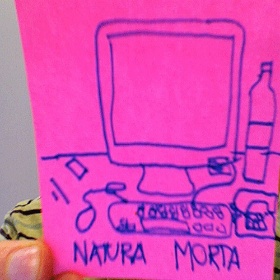 NATURA MORTA